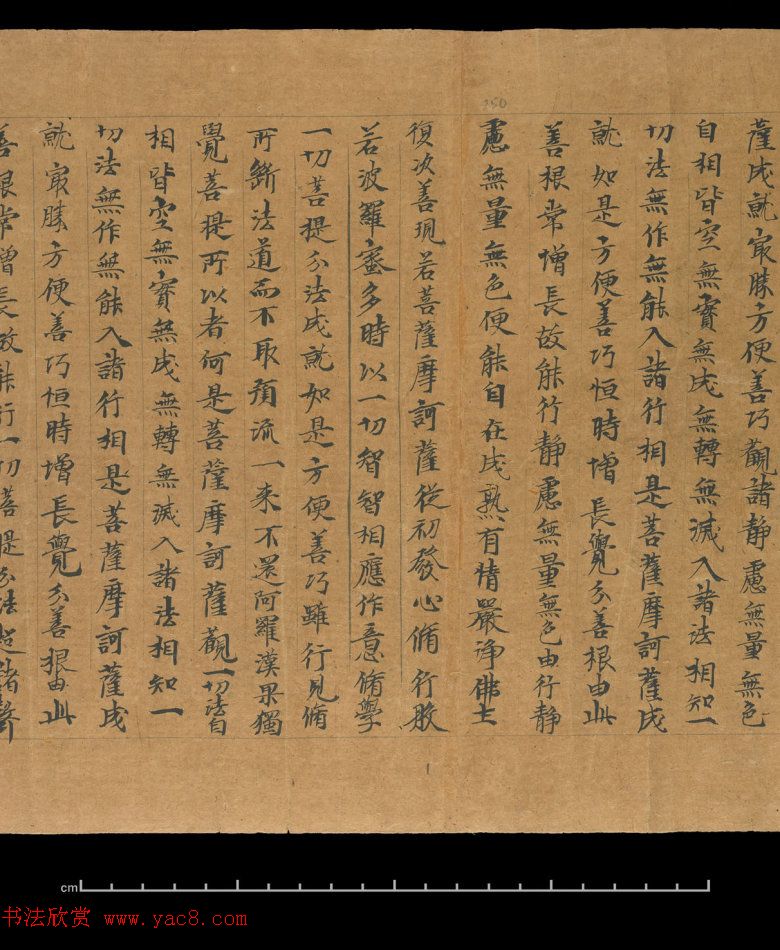 薩成就㝡勝方便善巧觀諸静慮無量無色
自相皆空無實無成無轉無滅入諸法相知一
切法無作無能入諸行相是菩薩摩訶薩成
就如是方便善巧恒時增長覺分善根由此
善根常增長故能行静慮無量無色由行静
慮無量無色便能自在成熟有情嚴淨佛土
復次善現若菩薩摩訶薩從初發心脩行般
若波羅蜜多時以一切智智相應作意脩學
一切菩提分法成就如是方便善巧雖行見脩
所斷法道而不取預流一来不還阿羅漢果獨
覺菩提所以者何是菩薩摩訶薩觀一切法自
相皆空無實無成無轉無滅入諸法相知一
切法無作無能入諸行相是菩薩摩訶薩成
就㝡勝方便善巧恒時增長覺分善根由此
善根常增長故能行一切菩提分法超諸聲
350
cm
书法欣赏 www.yac8.com